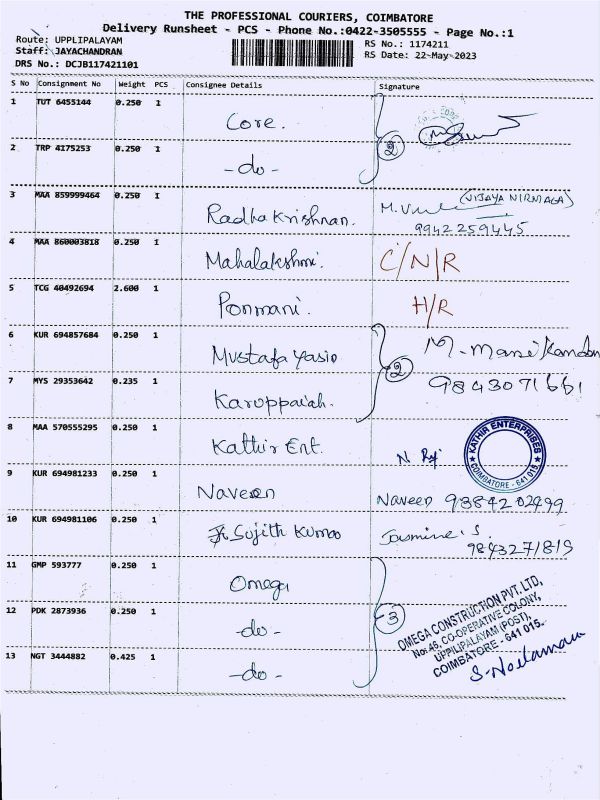 THE PROFESSIONAL COURIERS, COIMBATORE
Delivery Runsheet - PCS - Phone No.:0422-3505555 - Page No.:1
Route: UPPLIPALAYAM
Staff: JAYACHANDRAN
DRS No.: DCJB117421101
RS No.: 1174211
RS Date: 22-May-2023
S No Consignment No Weight PCS Consignee Details Signature
1 TUT 6455144 0.250 1 Core.
2 TRP 4175253 0.250 1 -do- 2
3 MAA 859999464 0.250 1 Radha Krishnan. M. (VIJAYA NIRMALA)
9942259445
4 MAA 860003818 0.250 1 Mahalakshmi. C/N/R
5 TCG 40492694 2.600 1 Ponmani. H/R
6 KUR 694857684 0.250 1 Mustafa Yasin M-Manikandan
7 MYS 29353642 0.235 1 Karuppaiah. 2 9843071661
8 MAA 570555295 0.250 1 Kathir Ent.
KATHIR ENTERPRISES
COIMBATORE - 641 015.
9 KUR 694981233 0.250 1 Naveen Naveen 9384202499
10 KUR 694981106 0.250 1 Sujith Kumar Jasmine S.
9843271819
11 GMP 593777 0.250 1 Omega
12 PDK 2873936 0.250 1 -do- 3
13 NGT 3444882 0.425 1 -do-
OMEGA CONSTRUCTION PVT. LTD,
No: 46, CO-OPERATIVE COLONY,
UPPILIPALAYAM (POST),
COIMBATORE - 641 015.